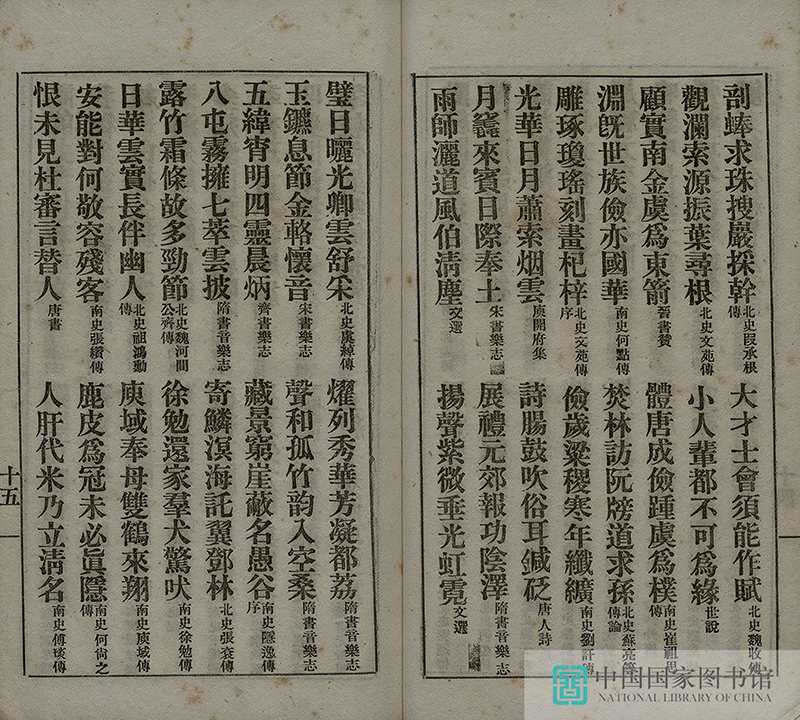 剖蜯求珠搜巖採幹北史叚承根傳　大才士會須能作賦北史魏收傳
觀瀾索源振葉尋根北史文苑傳　小人輩都不可為緣世說
顧實南金虞為東箭晉書贊　體唐成儉踵虞為樸南史崔祖思傳
淵旣世族儉亦國華南史何點傳　焚林訪阮牓道求孫北史蘇亮等傳論
雕琢瓊瑤刻畫杞梓北史文苑傳序　儉歲粱稷寒年纖纊南史劉訏傳
光華日月蕭索烟雲庾開府集　詩腸鼓吹俗耳鍼砭唐人詩
月竁來賓日際奉土宋書樂志　展禮元郊報功陰澤隋書音樂志
雨師灑道風伯淸塵文選　揚聲紫微垂光虹霓文選
璧日曬光卿雲舒采北史虞綽傳　燿列秀華芳凝都荔隋書音樂志
玉鑣息節金輅懷音宋書樂志　聲和孤竹韵入空桑隋書音樂志
五緯宵明四靈晨炳齊書樂志　藏景窮崖蔽名愚谷南史隱逸傳序
八屯霧擁七萃雲披隋書音樂志　寄鱗溟海託翼鄧林北史張袞傳
露竹霜條故多勁節北史魏河間公齊傳　徐勉還家羣犬驚吠南史徐勉傳
日華雲實長伴幽人北史祖鴻勳傳　庾域奉母雙鶴來翔南史庾域傳
安能對何敬容殘客南史張纘傳　鹿皮為冠未必眞隱南史何尙之傳
恨未見杜審言替人唐書　人肝代米乃立淸名南史傅琰傳
十五
中国国家图书馆
NATIONAL LIBRARY OF CHINA